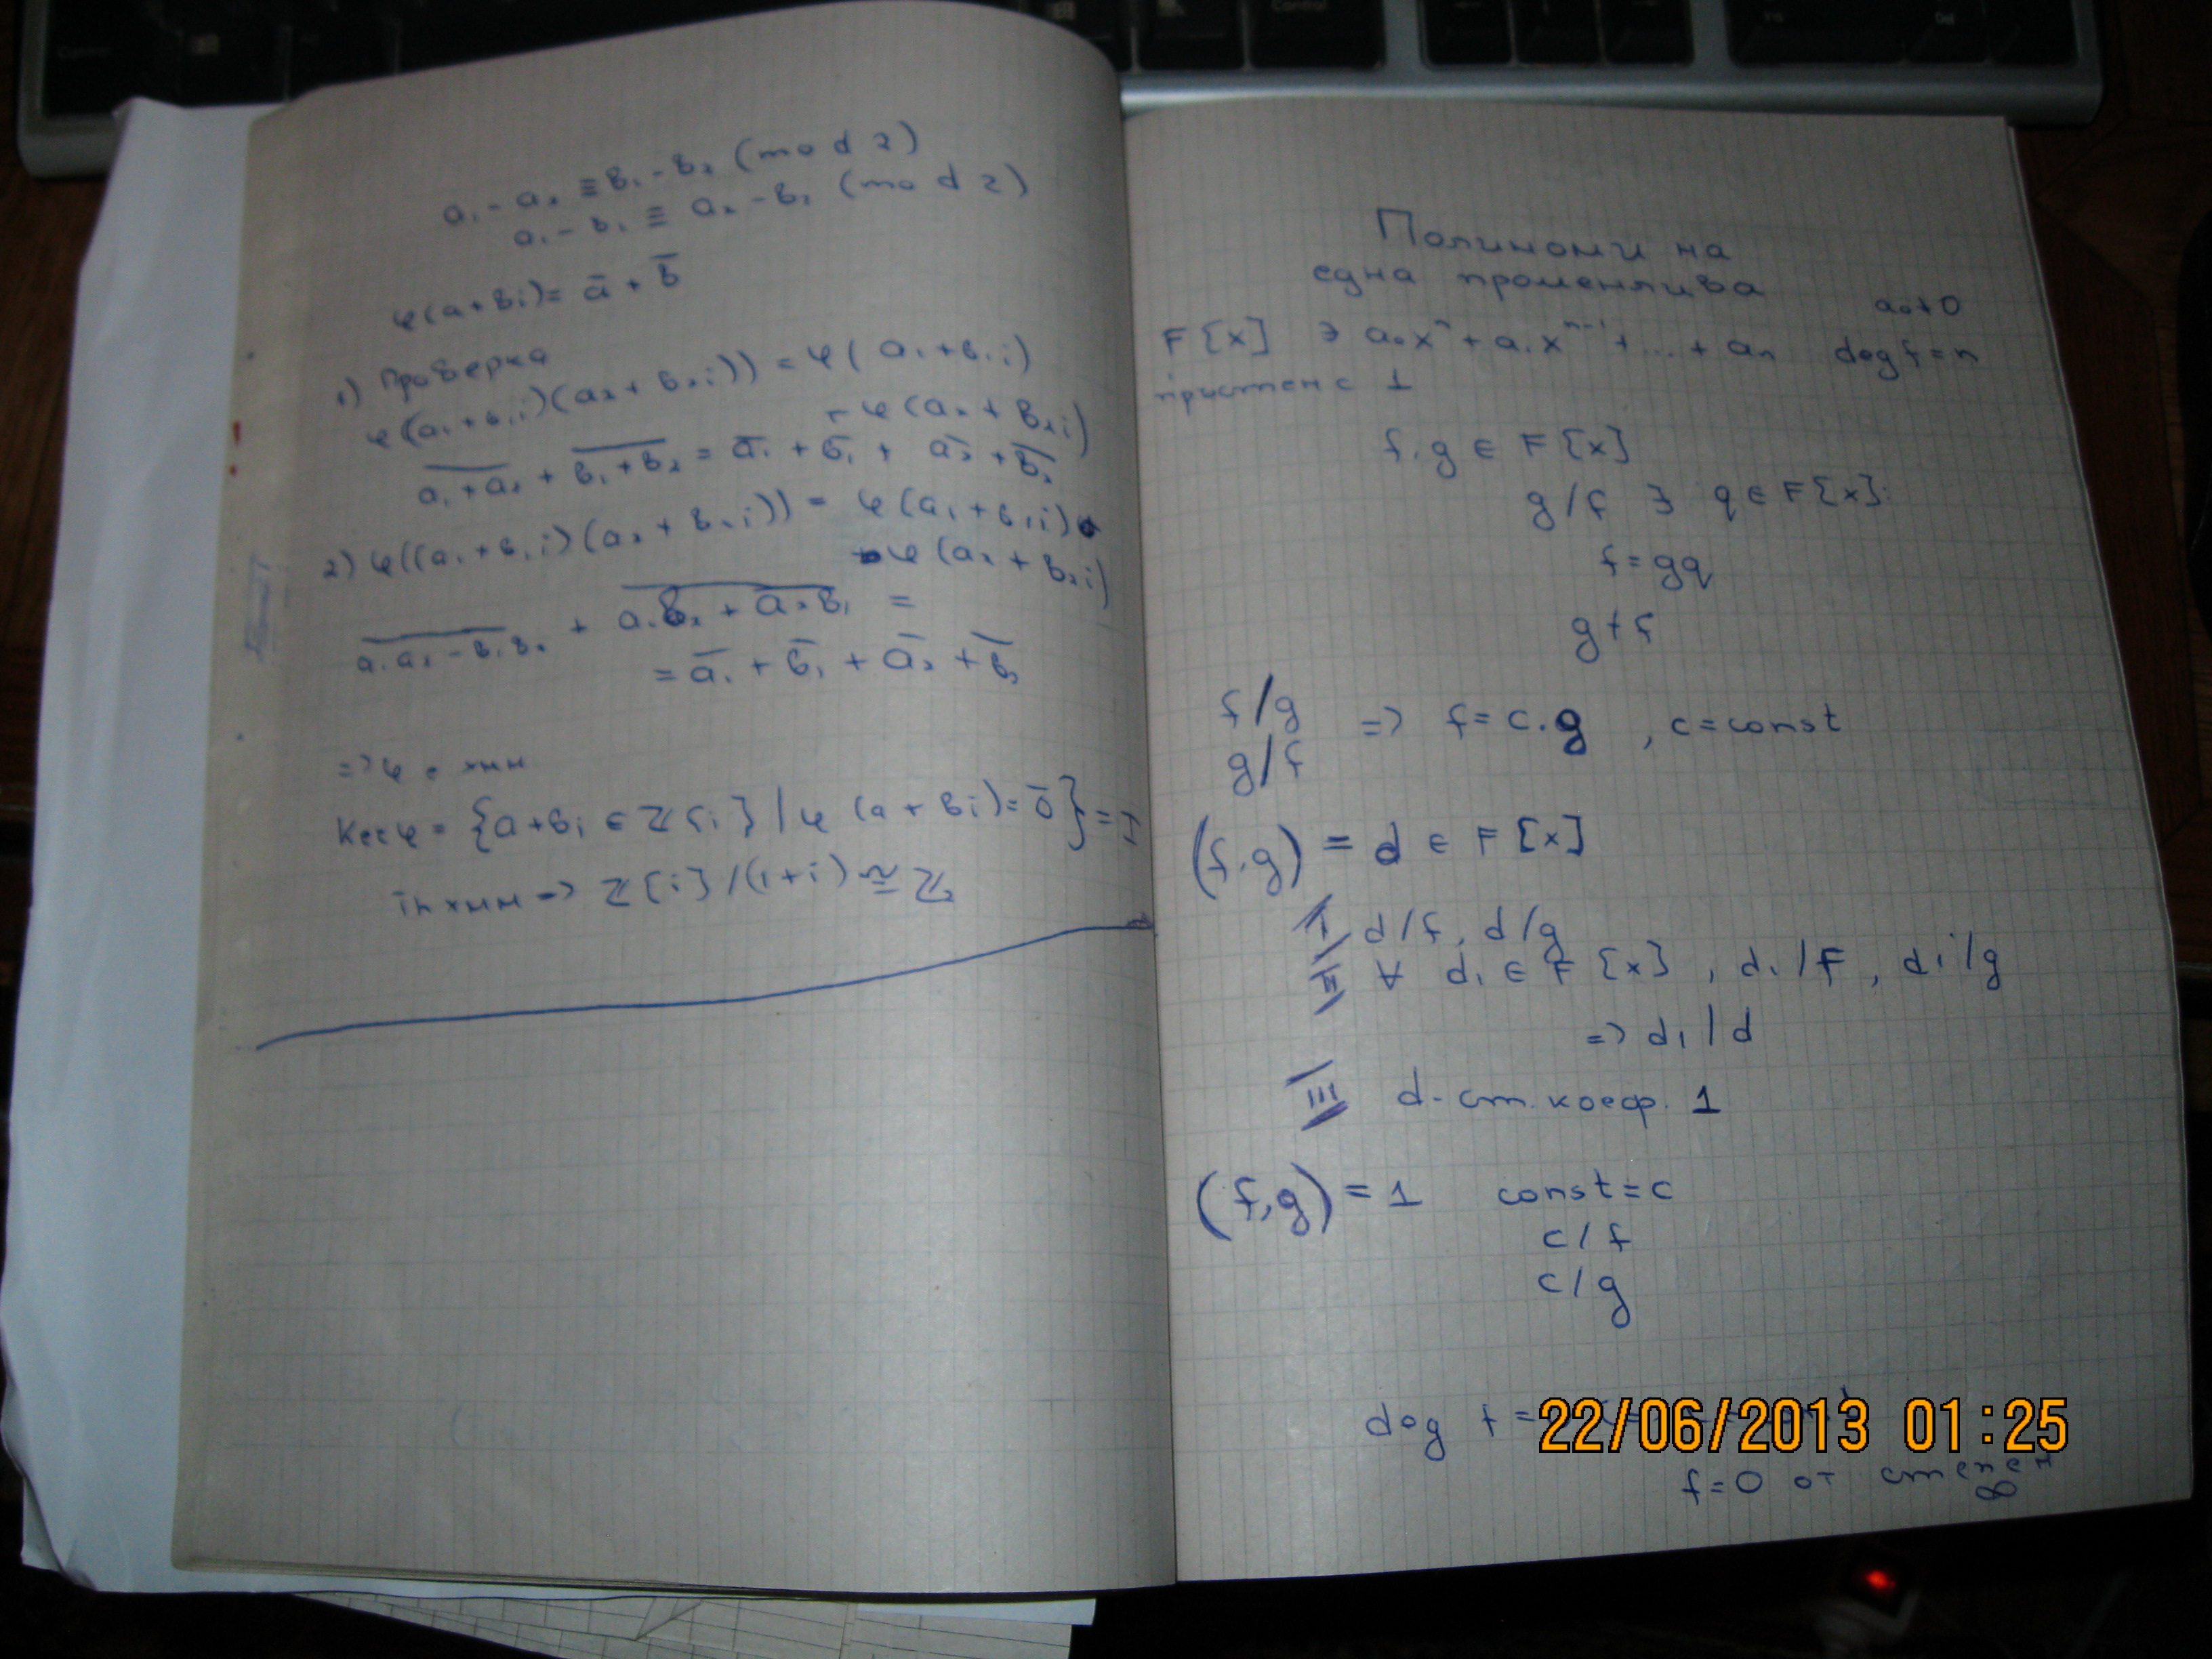 a₁ - a₂ ≡ b₁ - b₂ (mod 2)
a₁ - b₁ ≡ a₂ - b₂ (mod 2)
φ(a+bi) = ā + b̄
1) Проверка
φ((a₁+b₁i)(a₂+b₂i)) = φ(a₁+b₁i)
+ φ(a₂+b₂i)
\overline{a₁+a₂} + \overline{b₁+b₂} = ā₁ + b̄₁ + ā₂ + b̄₂
2) φ((a₁+b₁i)(a₂+b₂i)) = φ(a₁+b₁i).
.φ(a₂+b₂i)
\overline{a₁a₂ - b₁b₂} + \overline{a₁b₂ + a₂b₁} =
= ā₁ + b̄₁ + ā₂ + b̄₂
=> φ е хмм
Ker φ = {a+bi ∈ Z[i] | φ(a+bi) = 0̄} = I
Th хмм -> Z[i]/(1+i) ≅ Z₂
Полиноми на
една променлива
a₀ ≠ 0
F[x] ∋ a₀xⁿ + a₁xⁿ⁻¹ + ... + aₙ deg f = n
пръстен с 1
f, g ∈ F[x]
g/f ∃ q ∈ F[x]:
f = gq
g ∤ f
f/g
g/f => f = c.g , c = const
(f,g) = d ∈ F[x]
I d/f, d/g
II ∀ d₁ ∈ F[x], d₁/F, d₁/g
=> d₁/d
III d - ст. коеф. 1
(f,g) = 1 const = c
c/f
c/g
deg f =
22/06/2013 01:25
f = 0 от степен
∞